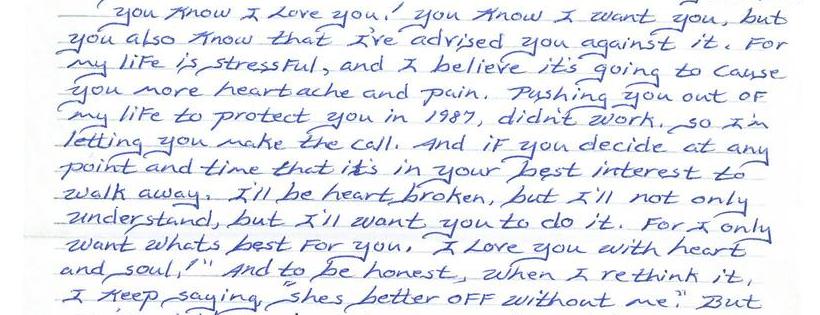 you know I Love you! you know I want you, but
you also know that I've advised you against it. For
my life is stressful, and I believe it's going to cause
you more heartache and pain. Pushing you out of
my life to protect you in 1987, didn't work. so I'm
letting you make the call. And if you decide at any
point and time that it's in your best interest to
walk away. I'll be heart broken, but I'll not only
understand, but I'll want you to do it. For I only
want whats best for you. I Love you with heart
and soul!" And to be honest, when I rethink it,
I keep saying, "shes better off without me." But